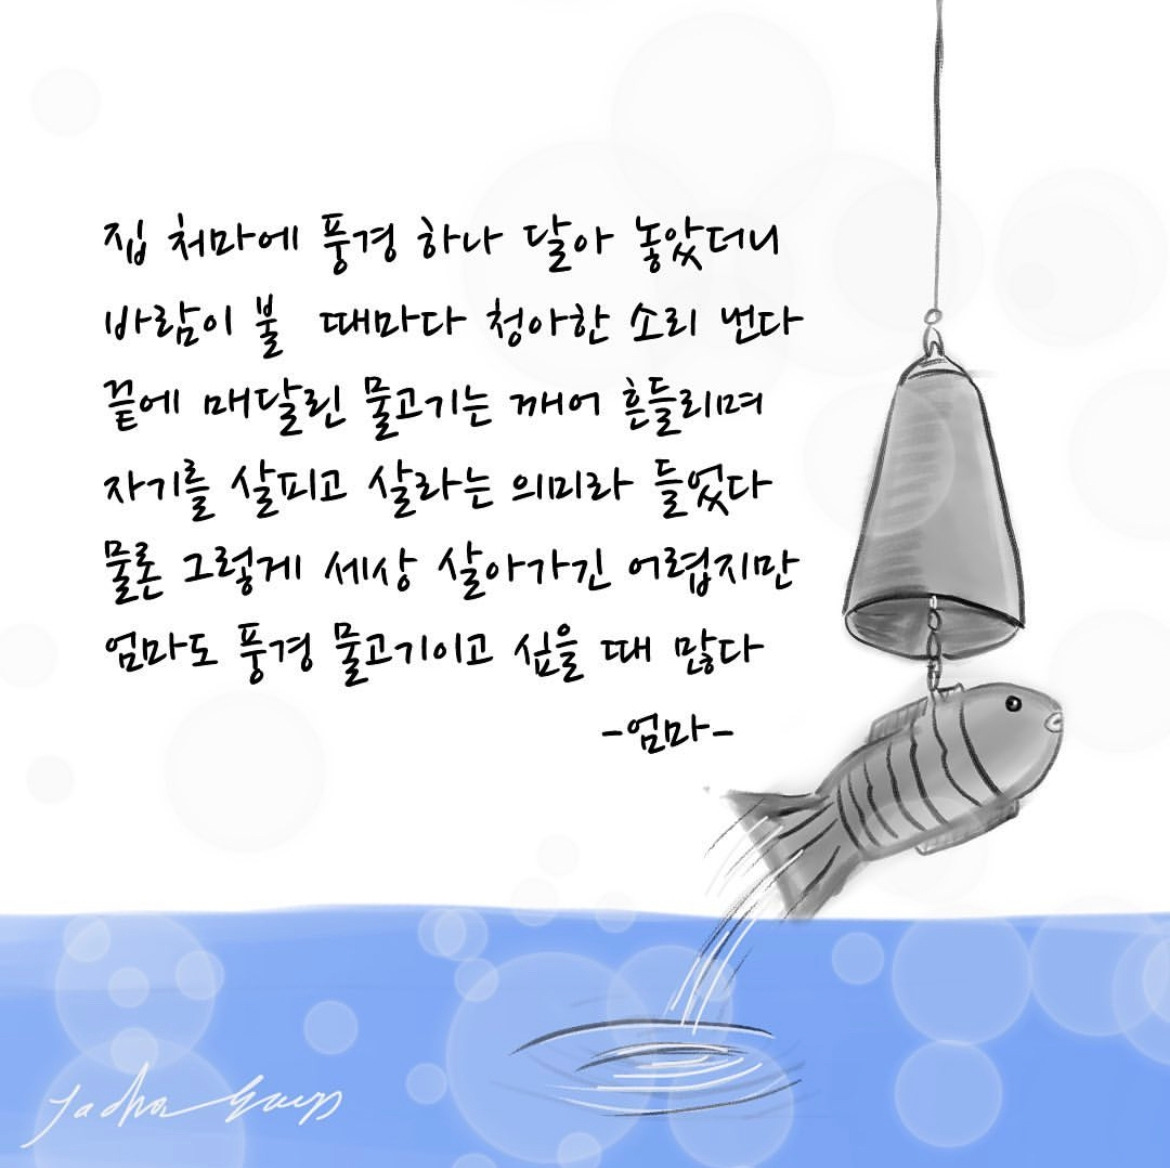 집 처마에 풍경 하나 달아 놓았더니
바람이 불 때마다 청아한 소리 낸다
끝에 매달린 물고기는 깨어 흔들리며
자기를 살피고 살라는 의미라 들었다
물론 그렇게 세상 살아가긴 어렵지만
엄마도 풍경 물고기이고 싶을 때 많다
-엄마-